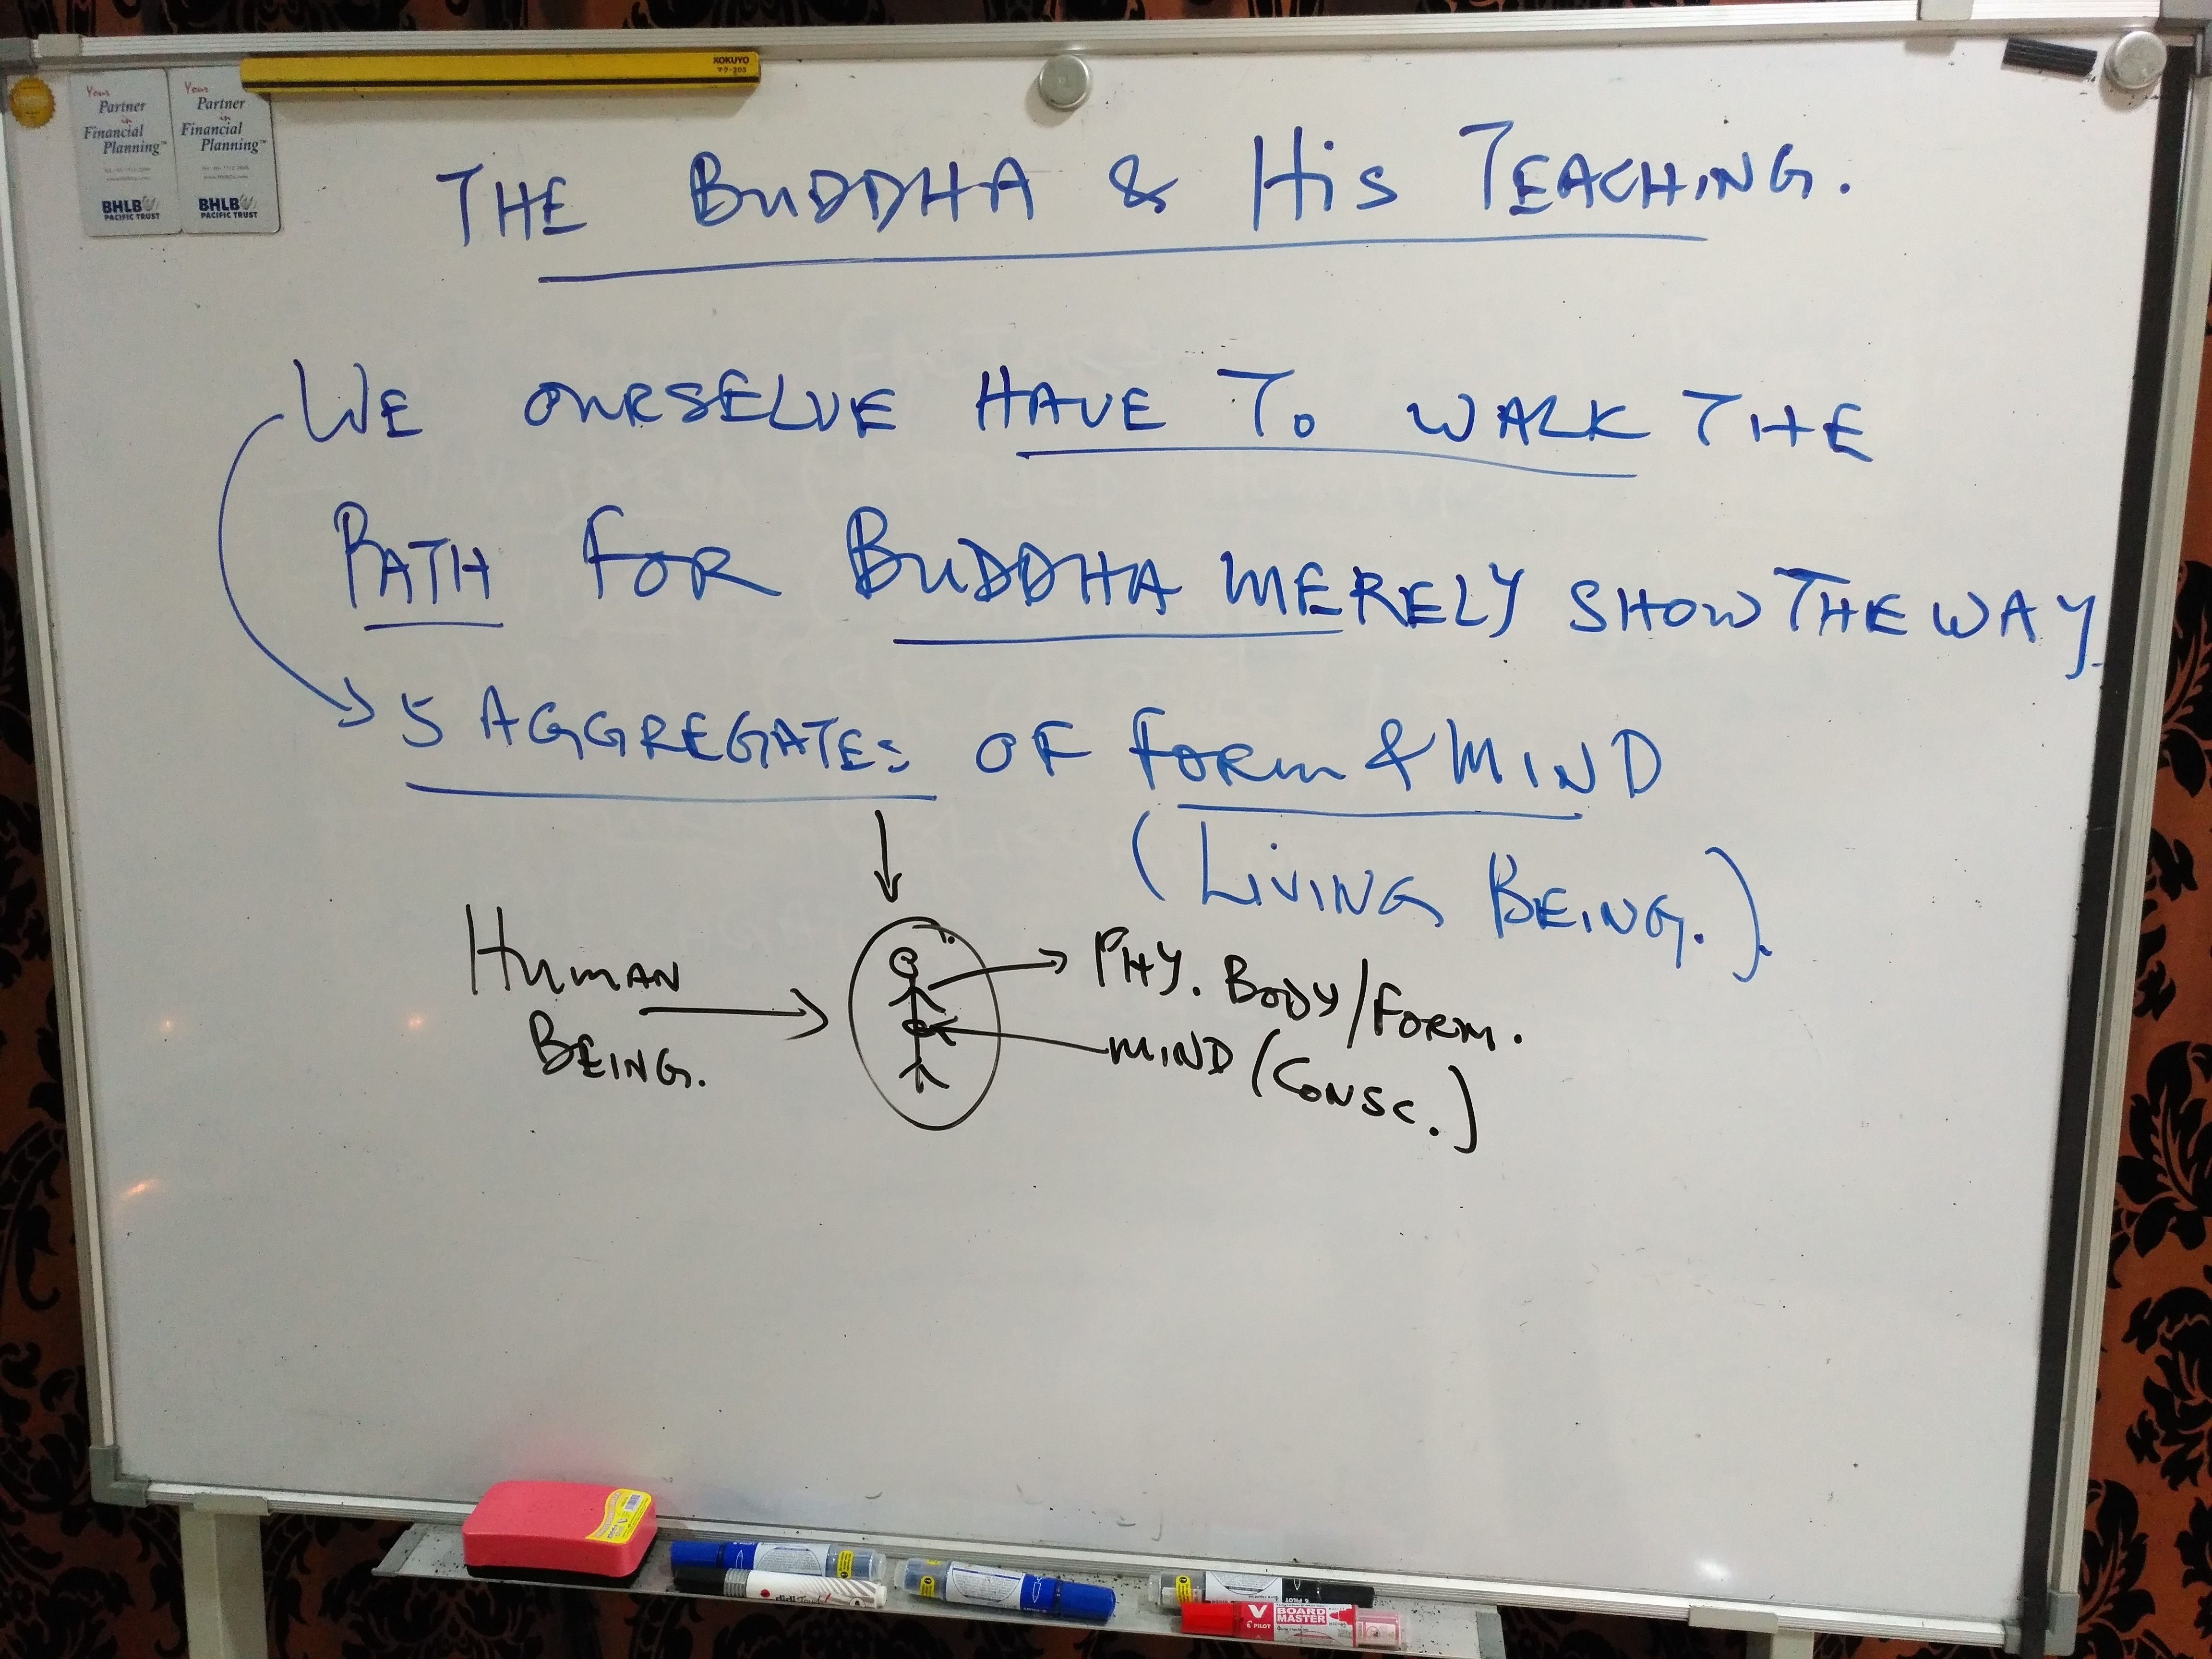 KOKUYO
Your
Partner
in
Financial
Planning™
BHLB
PACIFIC TRUST
Your
Partner
in
Financial
Planning™
BHLB
PACIFIC TRUST
THE BUDDHA & HIS TEACHING.
WE OURSELVE HAVE TO WALK THE
PATH FOR BUDDHA MERELY SHOW THE WAY
5 AGGREGATES OF FORM & MIND
(LIVING BEING.).
HUMAN
BEING.
PHY. BODY/FORM.
MIND (CONSC.)
V BOARD MASTER
PILOT